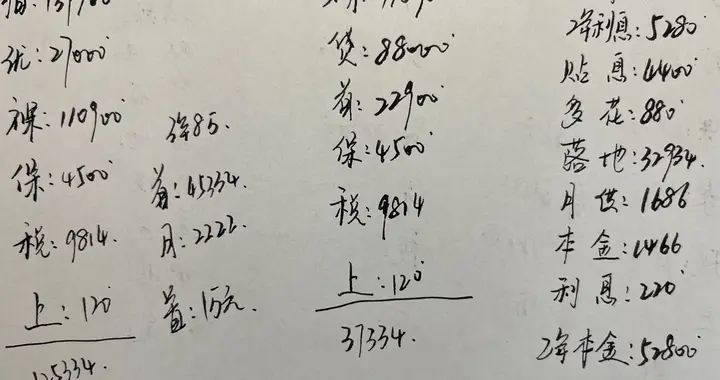 优:27000
裸:110900
保:4500
税:9814.
上:120
125334.
首:45334.
月:2222.
置:1万元.
贷:88000
首:22900
保:4500
税:9814
上:120
37334.
2年利息:5280
贴息:4400
多花:880
落地:32934.
月供:1686
本金:1466
利息:220
2年本金:52800